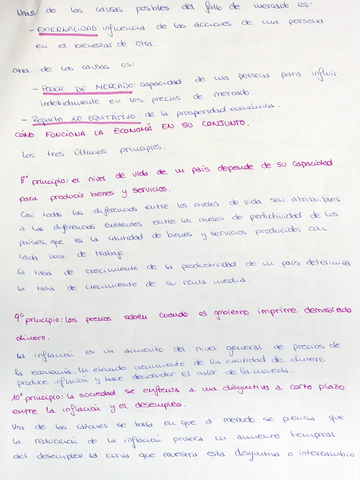 Unas de las causas posibles del fallo de mercado es:
- EXTERNALIDAD: influencia de las acciones de una persona
en el bienestar de otra.
Otra de las causas es:
- PODER DE MERCADO: capacidad de una persona para influir
indebidamente en los precios de mercado
- Reparto NO EQUITATIVO de la prosperidad económica.
CÓMO FUNCIONA LA ECONOMÍA EN SU CONJUNTO.
Los tres últimos principios:
8º principio: el nivel de vida de un país depende de su capacidad
para producir bienes y servicios.
Casi todas las diferencias entre los niveles de vida son atribuibles
a las diferencias existentes entre los niveles de productividad de los
países, que es la cantidad de bienes y servicios producidos con
cada hora de trabajo
La tasa de crecimiento de la productividad de un país determina
la tasa de crecimiento de su renta media.
9º principio: los precios suben cuando el gobierno imprime demasiado
dinero.
La inflación es un aumento del nivel general de precios de
la economía. Un elevado crecimiento de la cantidad de dinero
produce inflación y hace descender el valor de la moneda.
10º principio: la sociedad se enfrenta a una disyuntiva a corto plazo
entre la inflación y el desempleo.
Una de las razones se halla en que a menudo se piensa que
la reducción de la inflación provoca un aumento temporal
del desempleo la curva que muestra esta disyuntiva o intercambio